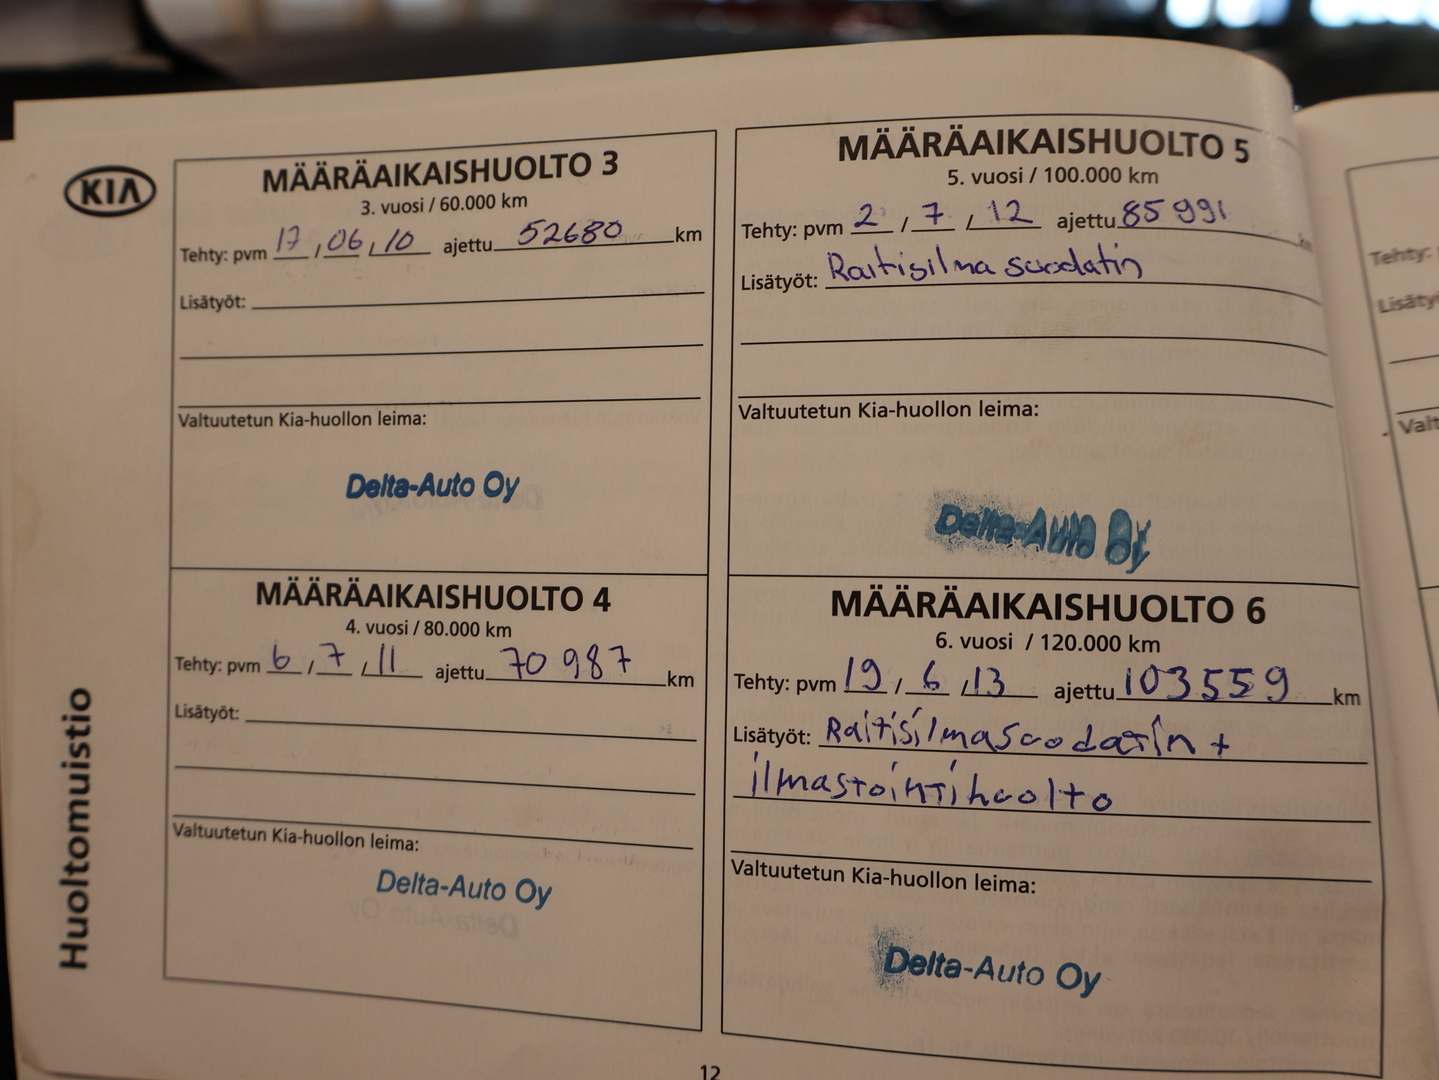 KIA
Huoltomuistio
MÄÄRÄAIKAISHUOLTO 3
3. vuosi / 60.000 km
Tehty: pvm 17 / 06 / 10 ajettu 52680 km
Lisätyöt:
Valtuutetun Kia-huollon leima:
Delta-Auto Oy
MÄÄRÄAIKAISHUOLTO 4
4. vuosi / 80.000 km
Tehty: pvm 6 / 7 / 11 ajettu 70 987 km
Lisätyöt:
Valtuutetun Kia-huollon leima:
Delta-Auto Oy
MÄÄRÄAIKAISHUOLTO 5
5. vuosi / 100.000 km
Tehty: pvm 2 / 7 / 12 ajettu 85 991 km
Lisätyöt: Raitisilma suodatin
Valtuutetun Kia-huollon leima:
Delta-Auto Oy
MÄÄRÄAIKAISHUOLTO 6
6. vuosi / 120.000 km
Tehty: pvm 19 / 6 / 13 ajettu 103559 km
Lisätyöt: Raitisilmasuodatin +
ilmastointihuolto
Valtuutetun Kia-huollon leima:
Delta-Auto Oy
12
Tehty: